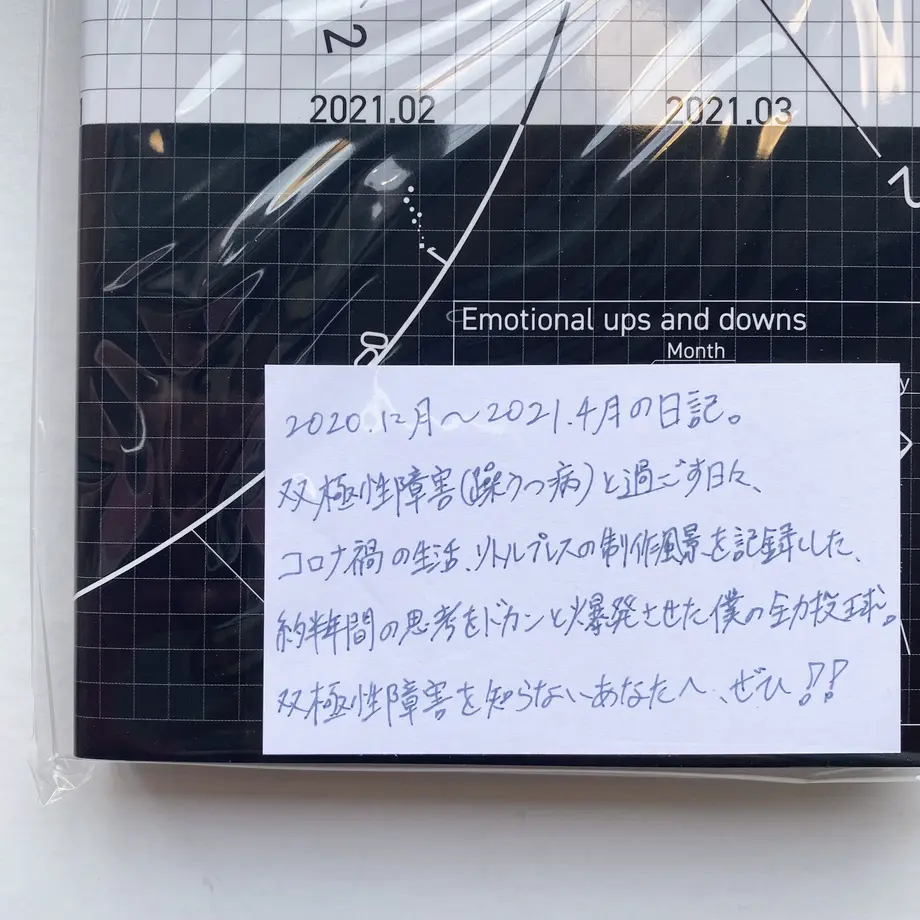 2
2021.02
2021.03
2
Emotional ups and downs
Month
2020.12月〜2021.4月の日記。
双極性障害(躁うつ病)と過ごす日々、
コロナ禍の生活、リトルプレスの制作風景を記録した、
約半年間の思考をドカンと爆発させた僕の全力投球。
双極性障害を知らないあなたへ、ぜひ!!